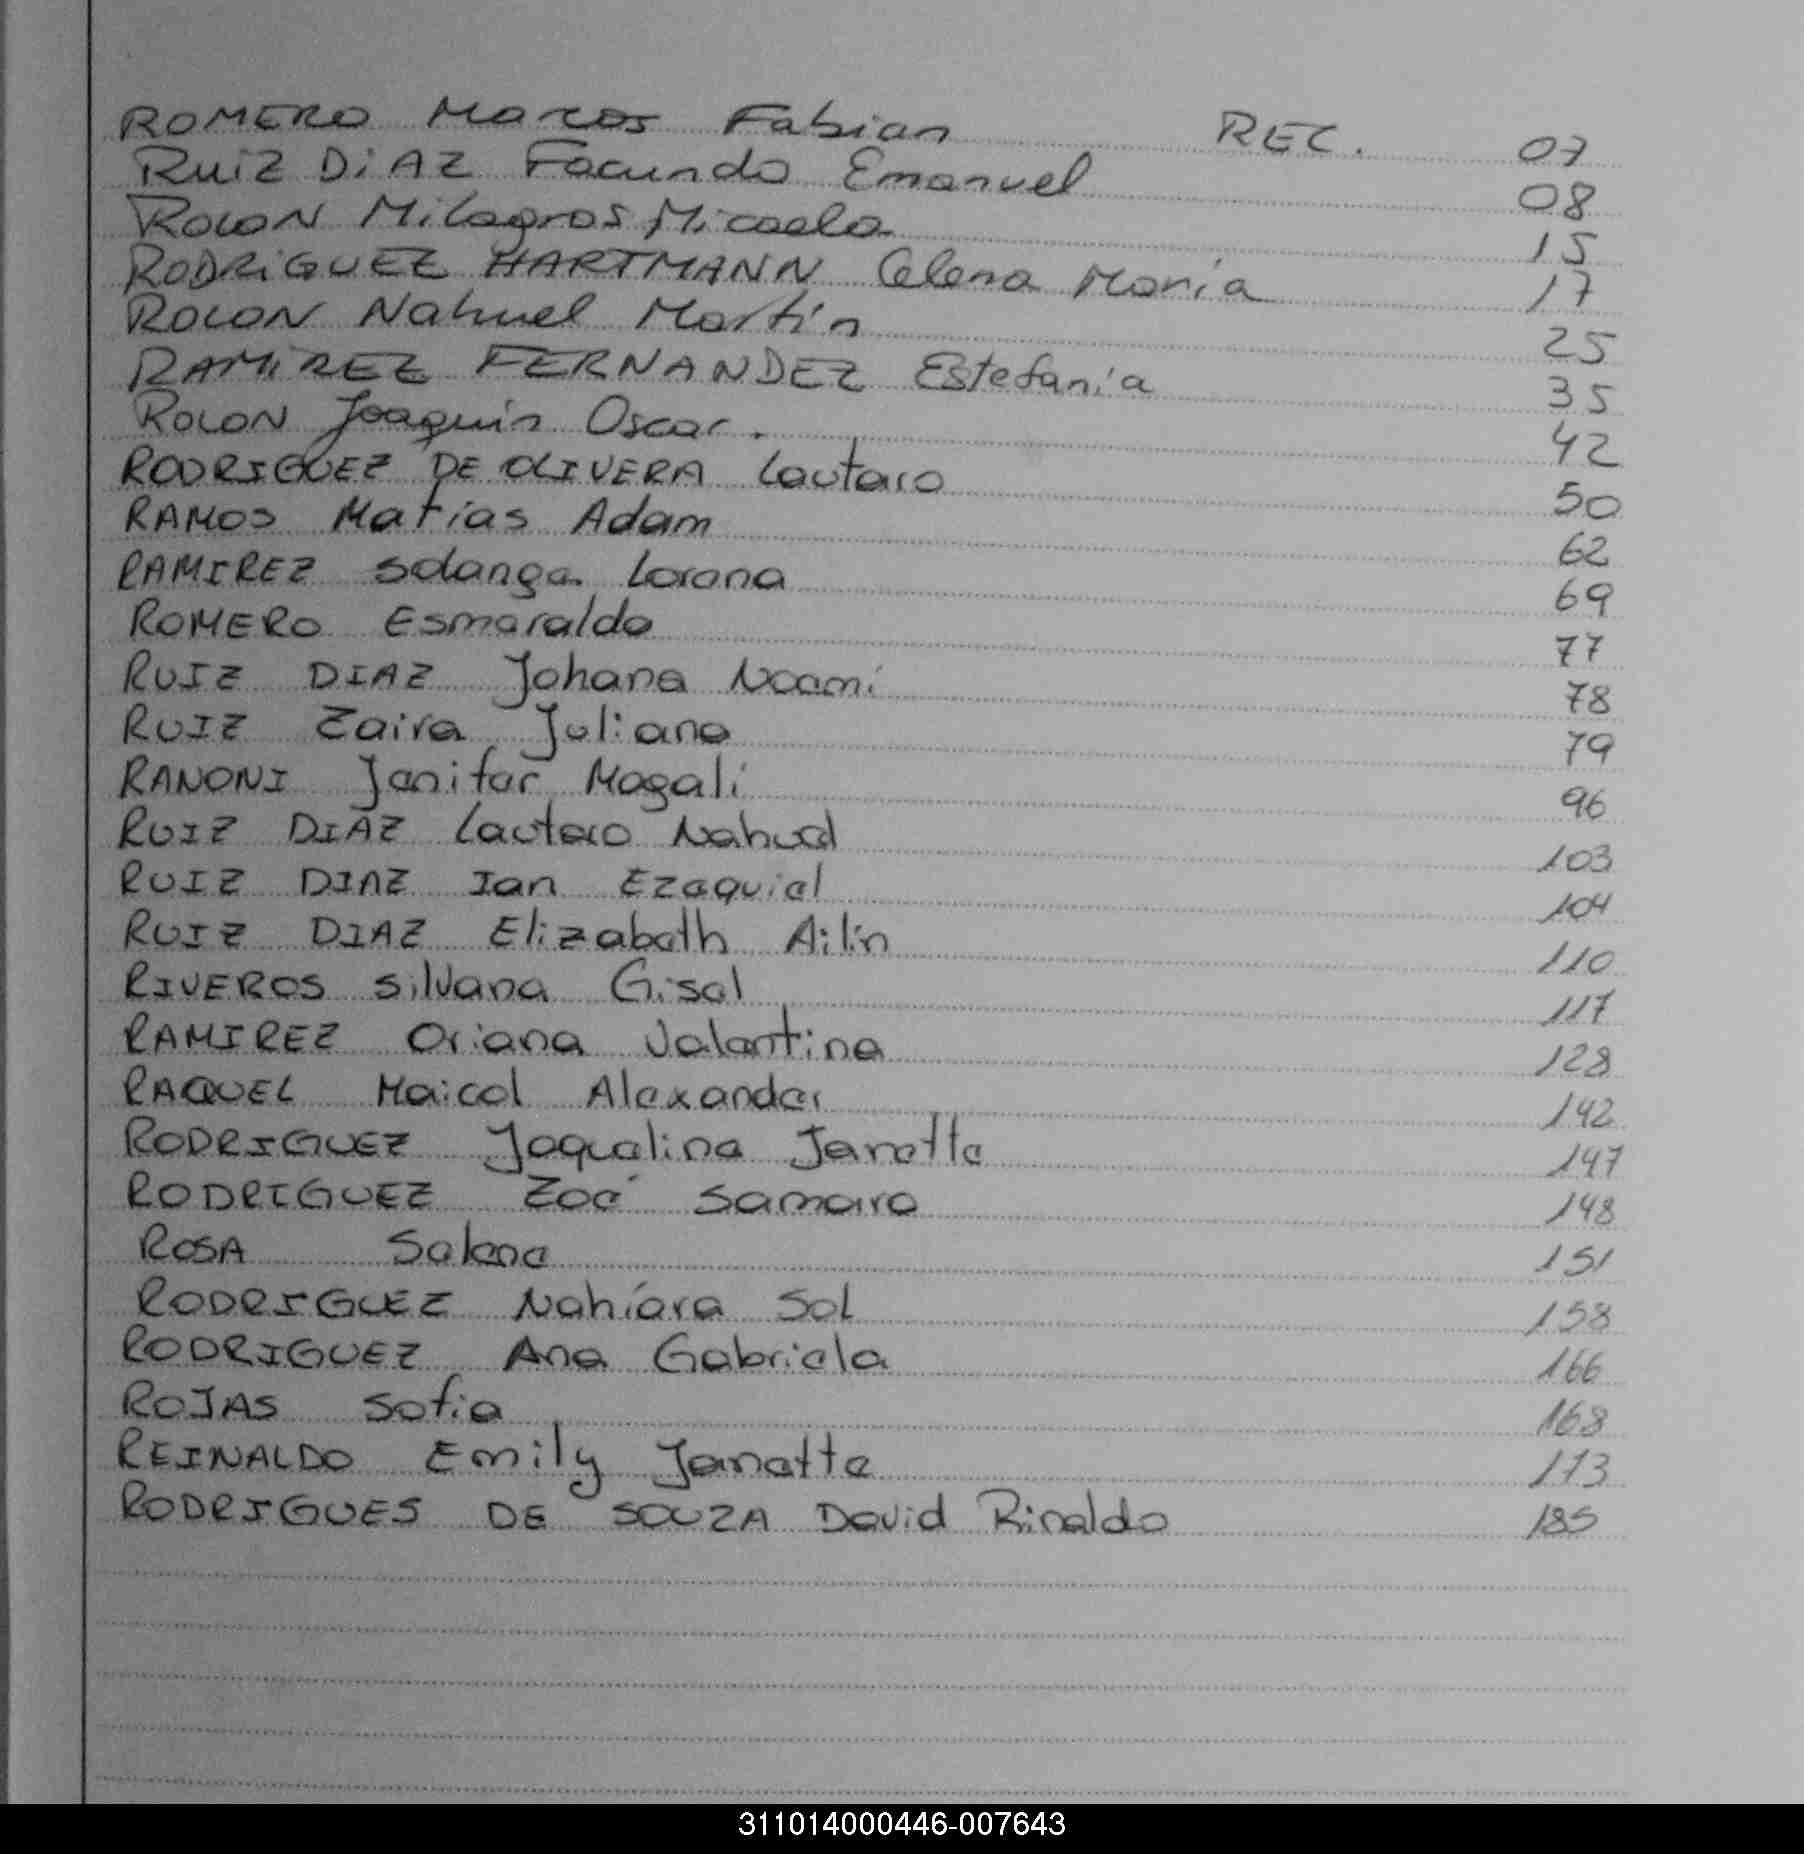 ROMERO Marcos Fabian REC. 07
RUIZ DIAZ Facundo Emanuel 08
ROLON Milagros Micaela 15
RODRIGUEZ HARTMANN Celena María 17
ROLON Nahuel Martín 25
RAMIREZ FERNANDEZ Estefanía 35
ROLON Joaquín Oscar. 42
RODRIGUEZ DE OLIVERA Lautaro 50
RAMOS Matías Adam 62
RAMIREZ Solange Lorena 69
ROMERO Esmeralda 77
RUIZ DIAZ Johana Noemí 78
RUIZ Zaira Juliana 79
RANONI Jenifer Magalí 96
RUIZ DIAZ Lautaro Nahuel 103
RUIZ DIAZ Ian Ezequiel 104
RUIZ DIAZ Elizabeth Ailín 110
RIVEROS Silvana Gisel 117
RAMIREZ Oriana Valentina 128
RAQUEL Maicol Alexander 142
RODRIGUEZ Jaquelina Janette 147
RODRIGUEZ Zoé Samara 148
ROSA Selene 151
RODRIGUEZ Nahiara Sol 158
RODRIGUEZ Ana Gabriela 166
ROJAS Sofia 168
REINALDO Emily Janette 173
RODRIGUES DE SOUZA David Rinaldo 185
311014000446-007643